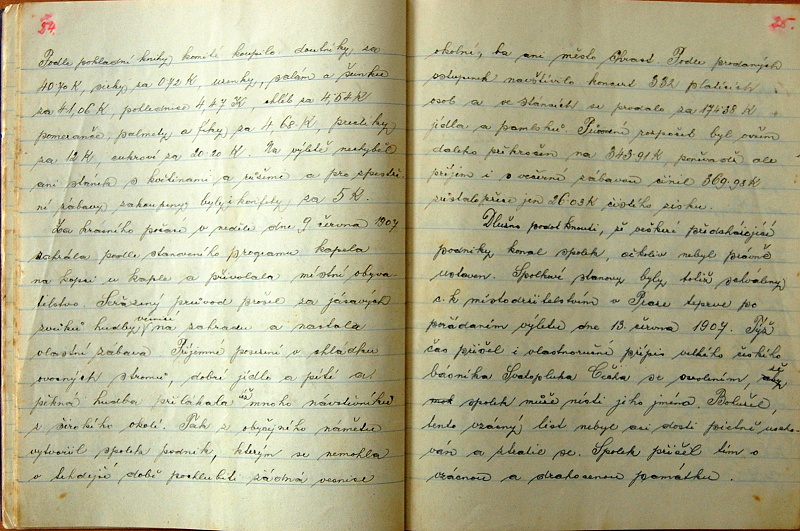 24.
Podle pokladní knihy komité koupilo doutníky za
40.70 K, sirky za 0.72 K, uzenky, salám a šunku
za 41,06 K, polednice 4.27 K chléb za 4,54 K
pomeranče, palmety a fíky za 4,68 K, preclíky
za 12 K, cukroví za 20.20 K. Na výletě nechyběl
ani stánek s květinami a růžemi a pro zpestře-
ní zábavy zakoupeny byly i konfety za 5 K.
Za krásného počasí v neděli dne 9. června 1907
zahrála podle stanoveného programu kapela
na kopci u kaple a přivolala místní obyva-
telstvo. Seřazený průvod prošel za jásavých
zvuků hudby vesnicí na zahradu a nastala
vlastní zábava. Příjemné posezení v chládku
ovocných stromů, dobré jídlo a pití a
pěkná hudba přilákala mnoho návštěvníků
z širokého okolí. Tak z obyčejného námětu
vytvořil spolek podnik, kterým se nemohla
v tehdejší době pochlubiti žádná vesnice
25.
okolní, ba ani město Chrast. Podle prodaných
vstupenek navštívilo koncert 332 platících
osob a ve stanech se prodalo za 174.38 K
jídla a pamlsků. Původní rozpočet byl ovšem
daleko překročen na 343.91 K poněvadž ale
příjem i s večerní zábavou činil 369.93 K
zůstalo přece jen 26.03 K čistého zisku.
Dlužno podotknouti, že veškeré předcházející
podniky konal spolek, ačkoliv nebyl právně
ustaven. Spolkové stanovy byly totiž schváleny
c. k. místodržitelstvím v Praze teprve po
pořádaném výletu dne 13. června 1907. Týž
čas přišel i vlastnoruční přípis velkého českého
básníka Svatopluka Čecha se svolením, že
spolek může nésti jeho jména. Bohužel,
tento vzácný list nebyl asi dosti pietně ucho-
ván a ztratil se. Spolek přišel tím o
vzácnou a drahocenou památku.